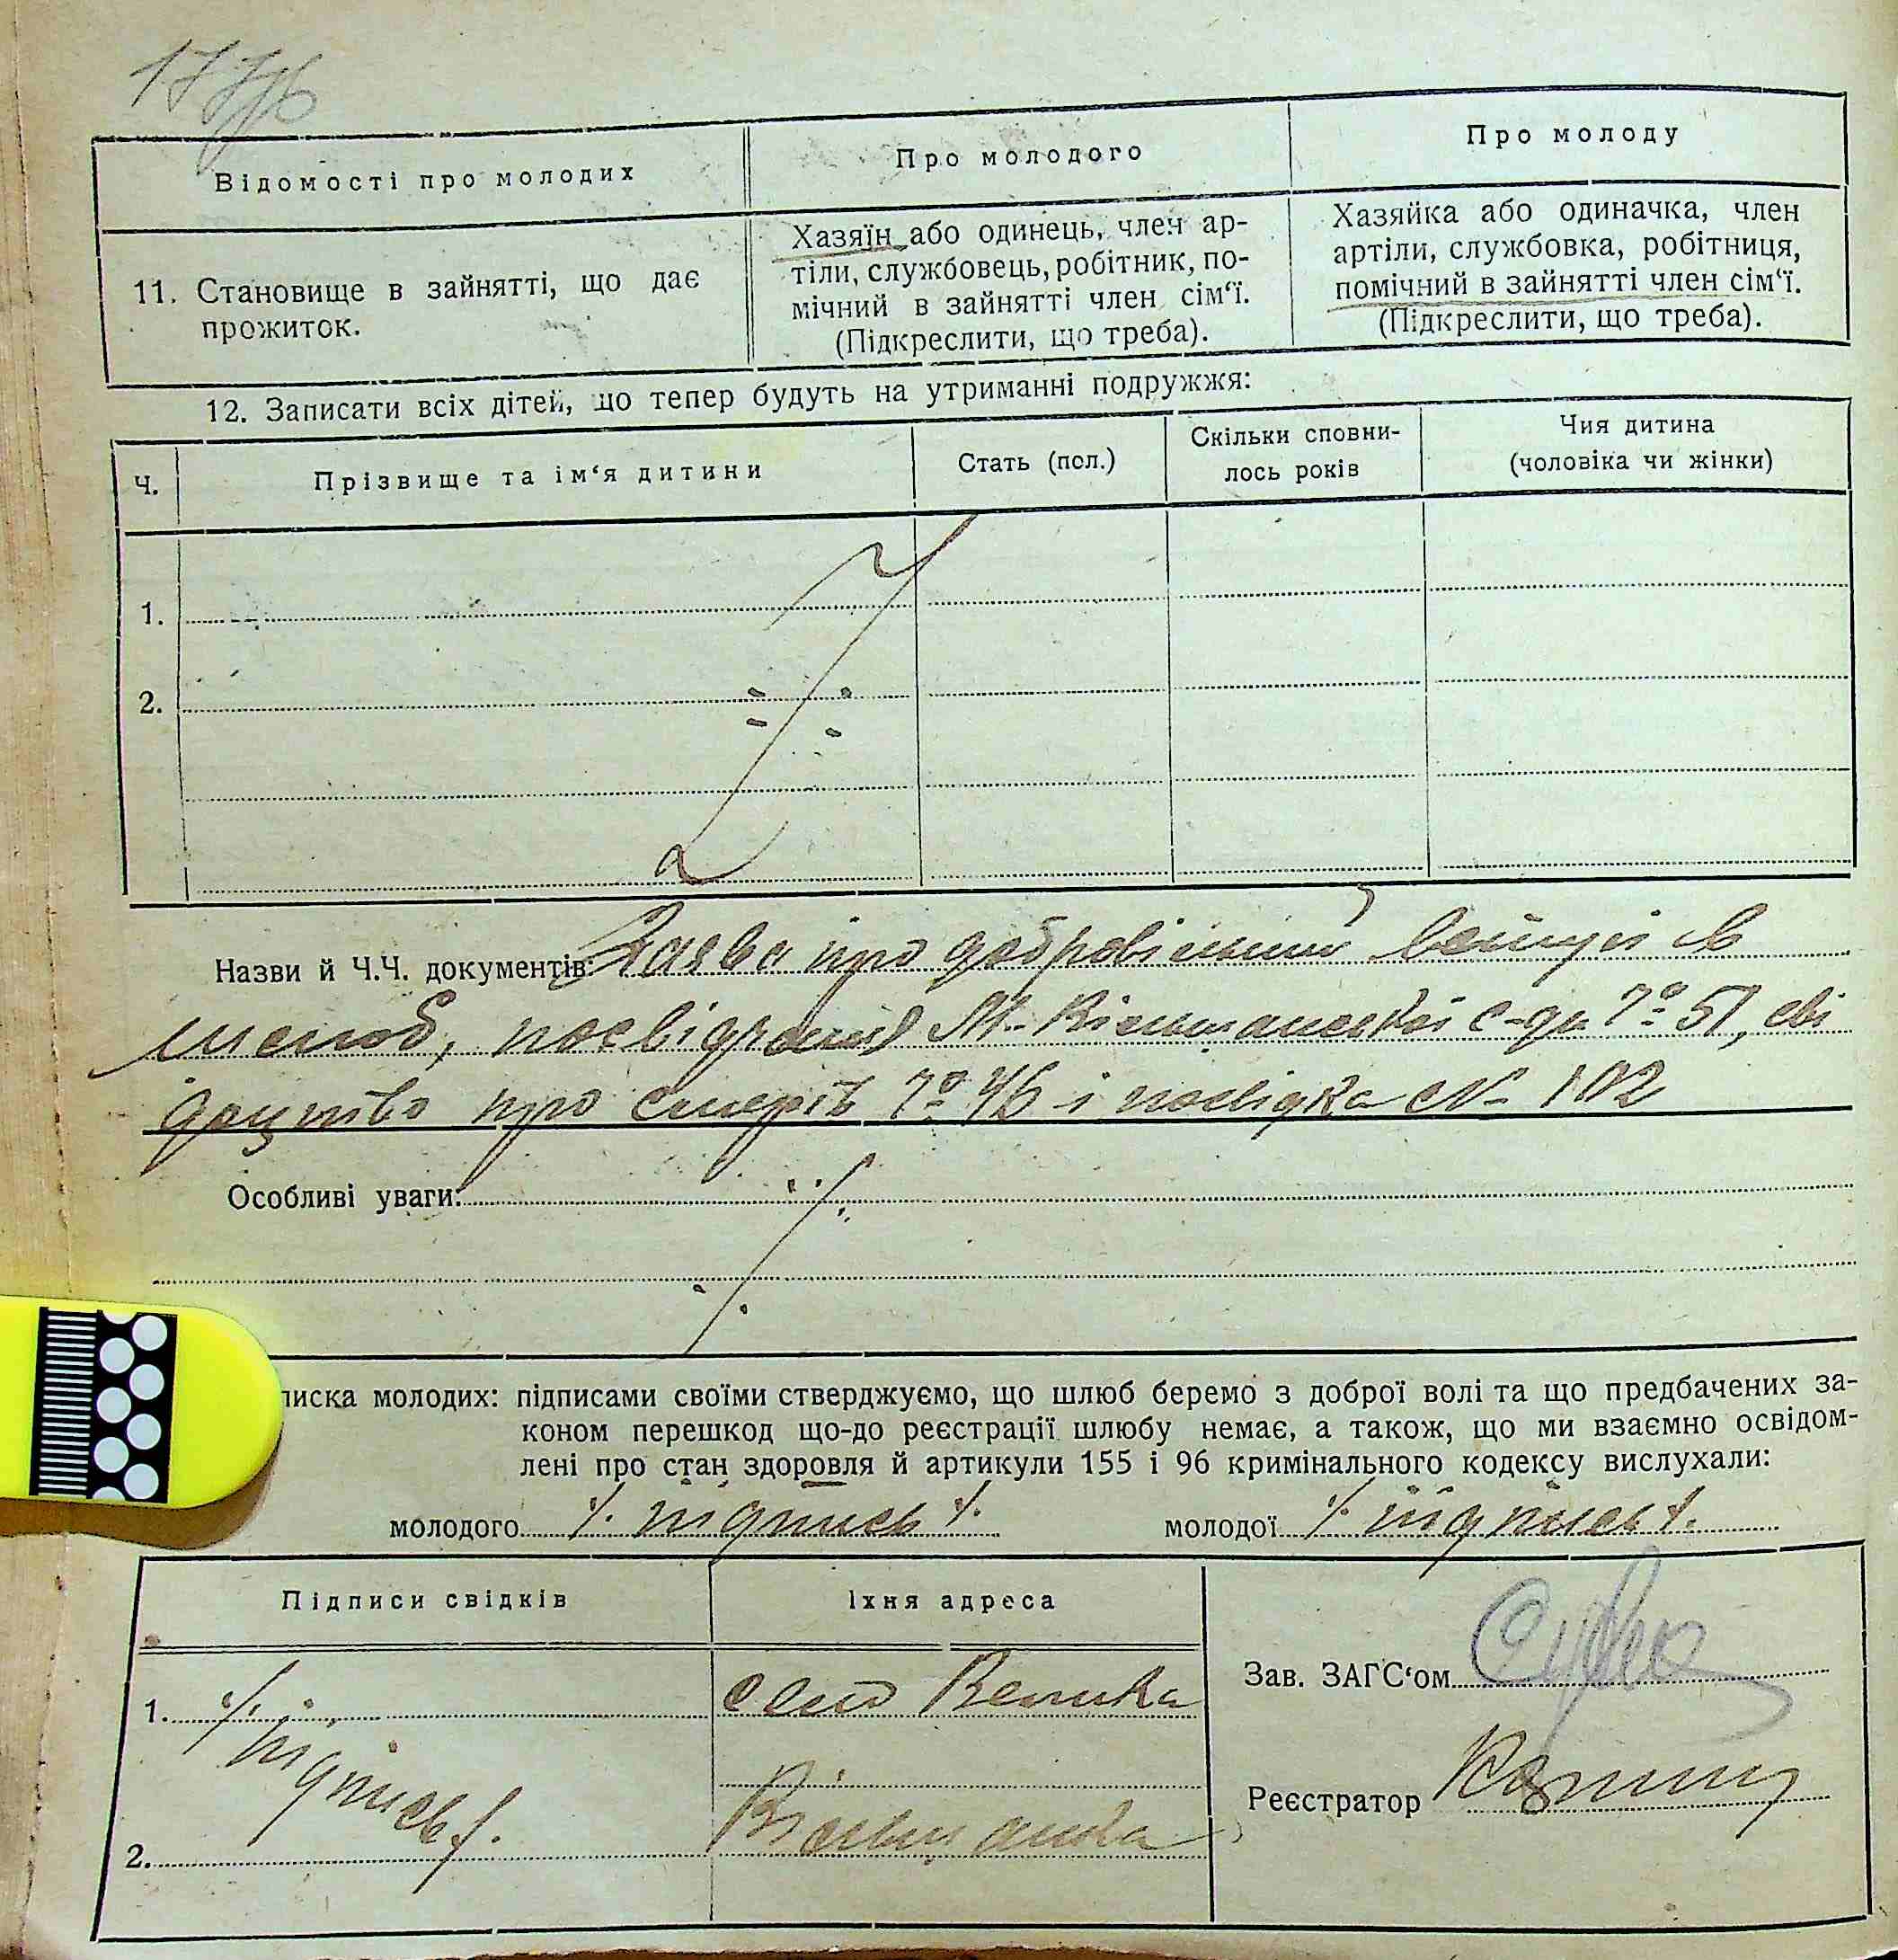 Відомості про молодих
Про молодого
Про молоду
11. Становище в зайнятті, що дає
прожиток.
Хазяїн або одинець, член ар-
тіли, службовець, робітник, по-
мічний в зайнятті член сім‘ї.
(Підкреслити, що треба).
Хазяйка або одиначка, член
артіли, службовка, робітниця,
помічний в зайнятті член сім‘ї.
(Підкреслити, що треба).
12. Записати всіх дітей, що тепер будуть на утриманні подружжя:
Ч.
Прізвище та ім‘я дитини
Стать (пол.)
Скільки сповни-
лось років
Чия дитина
(чоловіка чи жінки)
1.
2.
Назви й Ч.Ч. документів: Заява про добровільний вступ в
шлюб, М-Вільшанської с-ди № 51, сві
доцтво про смерть № 46 і посвідка № 102
Особливі уваги:
писка молодих: підписами своїми стверджуємо, що шлюб беремо з доброї волі та що предбачених за-
коном перешкод що-до реєстрації шлюбу немає, а також, що ми взаємно освідом-
лені про стан здоровля й артикули 155 і 96 кримінального кодексу вислухали:
молодого ⁒ підпись ⁒ молодої ⁒ підпись ⁒
Підписи свідків
Їхня адреса
1. ⁒ підпись ⁒
2.
село Велика
Вільшанка
Зав. ЗАГС‘ом
Реєстратор